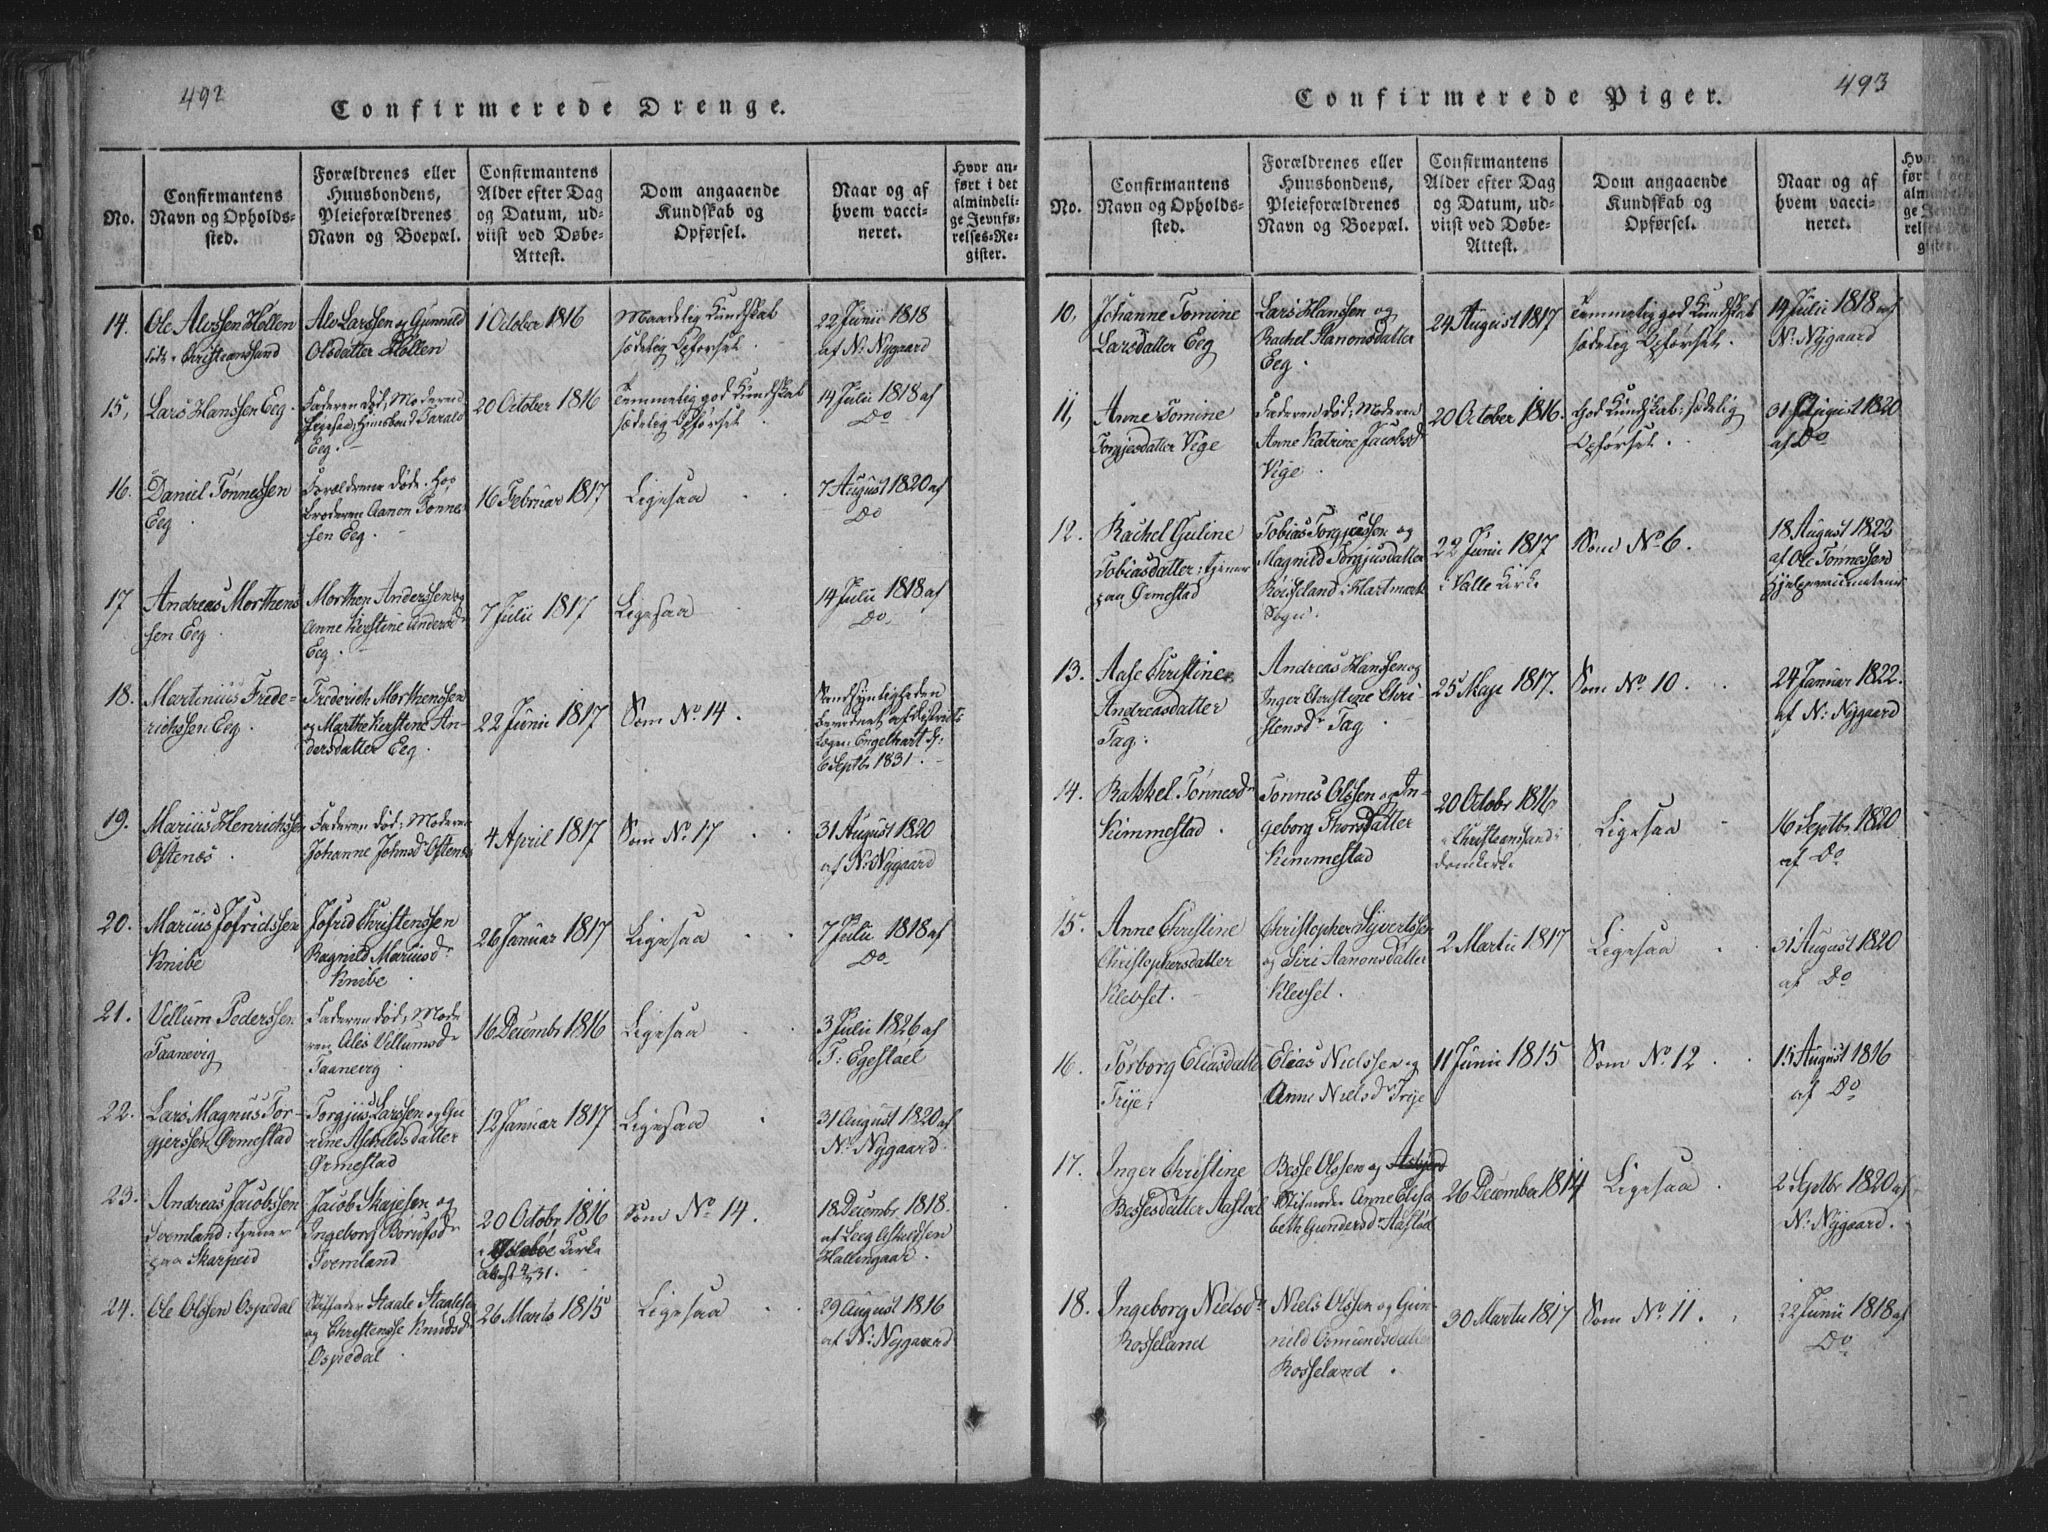 492
Confirmerede Drenge.
No.
Confirmantens
Navn og Opholds-
sted.
Forældrenes eller
Huusbondens,
Pleieforældrenes
Navn og Boepæl.
Confirmantens
Alder efter Dag
og Datum, ud-
viist ved Døbe-
Attest.
Dom angaaende
Kundskab og
Opførsel.
Naar og af
hvem vacci-
neret.
Hvor an-
ført i det
almindeli-
ge Jevnfø-
relses-Re-
gister.
14.
Ole Alvssen Høllen
Christiansand
Alv Larssen og Gunnild
Olsdatter Høllen
1 October 1816
Maadelig Kundskab
sædelig Opførsel.
22 Junii 1818
af N: Nygaard
15,
Lars Hanssen Eeg.
Faderen død, Moderen
Tarald
Eeg.
20 October 1816
Temmelig god Kundskab
sædelig Opførsel.
14 Julii 1818 af
Do
16.
Daniel Tønnessen
Eeg
Forældrene døde. Hos
Broderen Aanon Tønnes
sen Eeg.
16 Februar 1817
Ligesaa
7 August 1820 af
Do
17
Andreas Morthens
sen Eeg
Morthen Anderssen og
Anne Kirstine Andersdr
Eeg.
7 Julii 1817
Ligesaa
14 Julii 1818 af
Do.
18.
Martinius Frede-
richssen Eeg.
Friderich Morthenssen
og Marthe Kirstine An-
dersdatter Eeg.
22 Junii 1817
Som No 14.
Sandsynligheden
bevidnet af Districts
Læge: Engelhart d:
6 Septbr 1831.
19.
Marius Henrichssen
Oftenæs.
Faderen død, Moderen
Johanne Johnsdr Oftenæs
4 April 1817
Som No 17
31 August 1820
af N: Nygaard
20.
Marius Jofridssen
Knibe
Jofrid Christenssen
Ragnild Mariusdr
Knibe
26 Januar 1817
Ligesaa
7 Julii 1818 af
Do.
21.
Vellum Pederssen
Taanevig
Faderen død, Mode
ren Ales Vellumsdr
Taanevig.
16 Decembr 1816
Ligesaa
3 Julii 1826 af
T: Egestøel
22.
Lars Magnus Tor-
gjerssen Ørmestad
Torgjus Larssen og Gu
rine Aschildsdatter
Ørmestad
12 Januar 1817
Ligesaa
31 August 1820 af
N: Nygaard.
23.
Andreas Jacobssen
Ivemland: tjener
paa Skarpeid
Jacob Skajesen og
Ingeborg Børufsdr
Ivemland
20 Octobr 1816
Kirke
Attest 4/5 31.
Som No 14.
18 Decembr 1818.
af Leeg Askildssen
Hallingaar.
24.
Ole Olssen Ospedal
Stiffader Staale Staalesen
og Christense Knudsdr
Ospedal
26 Marts 1815
Ligesaa
29 August 1816
af N: Nygaard
493
Confirmerede Piger.
No.
Confirmantens
Navn og Opholds-
sted.
Forældrenes eller
Huusbondens,
Pleieforældrenes
Navn og Boepæl.
Confirmantens
Alder efter Dag
og Datum, ud-
viist ved Døbe-
Attest.
Dom angaaende
Kundskab og
Opførsel.
Naar og af
hvem vacci-
neret.
Hvor an-
ført i det
almindeli-
ge Jevnfø-
relses-Re-
gister.
10,
Johanne Tomine
Larsdatter Eeg
Lars Hanssen og
Rachel Hanonsdatter
Eeg.
24 August 1817
Temmelig god Kundskab
sædelig Opførsel.
14 Julii 1818 af
N: Nygaard
11,
Anne Tomine
Torgjesdatter Vige
Faderen død, Moderen
Anne Katrine Jacobsdr
Vige.
20 October 1816.
God Kundskab; sædelig
Opførsel.
31 August 1820
af Do
12.
Rachel Guline
Tobiasdatter: tjener
paa Ørmestad
Tobias Torgjussen og
Magnild Torgjusdatter
Røiseland i Hartmark
Sogn.
22 Junii 1817
i Valle Kirke
Som No 6.
18 August 1822
af Ole Tønnessen
Hjelpevaccinateur
13.
Aase Christine
Andreasdatter
Tag.
Andreas Hanssen og
Inger Christine Chri
stensdr Tag.
25 Maje 1817.
Som No 10.
24 Januar 1822.
af N: Nygaard
14.
Rakkel Tønnesdr
Kimmestad.
Tønnes Olssen og In-
geborg Thorsdatter
Kimmestad
20 Octobr 1816
Christiansands
domkirke
Ligesaa
16 Septbr 1820
af Do
15.
Anne Christine
Christophersdatter
Klevset.
Christopher Syvertssen
og Siri Aanonsdatter
Klevset.
2 Martii 1817
Ligesaa
31 August 1820
af Do
16.
Torborg Eliasdatter
Trye.
Elias Nielssen og
Anne Nielsdr Trye
11 Junii 1815
Som No 12
15 August 1816
af Do
17.
Inger Christine
Bessesdatter Aastøel
Besse Olssen og
Stifmoder Anne Elisa
beth Gundersdr Aastøel
26 December 1814
Ligesaa
2 Septbr 1820 af
N: Nygaard.
18.
Ingeborg Nielsdr
Rosseland
Niels Olssen og Gun-
nild Osmundsdatter
Rosseland.
30 Martii 1817
Som No 11.
22 Junii 1818 af
Do.